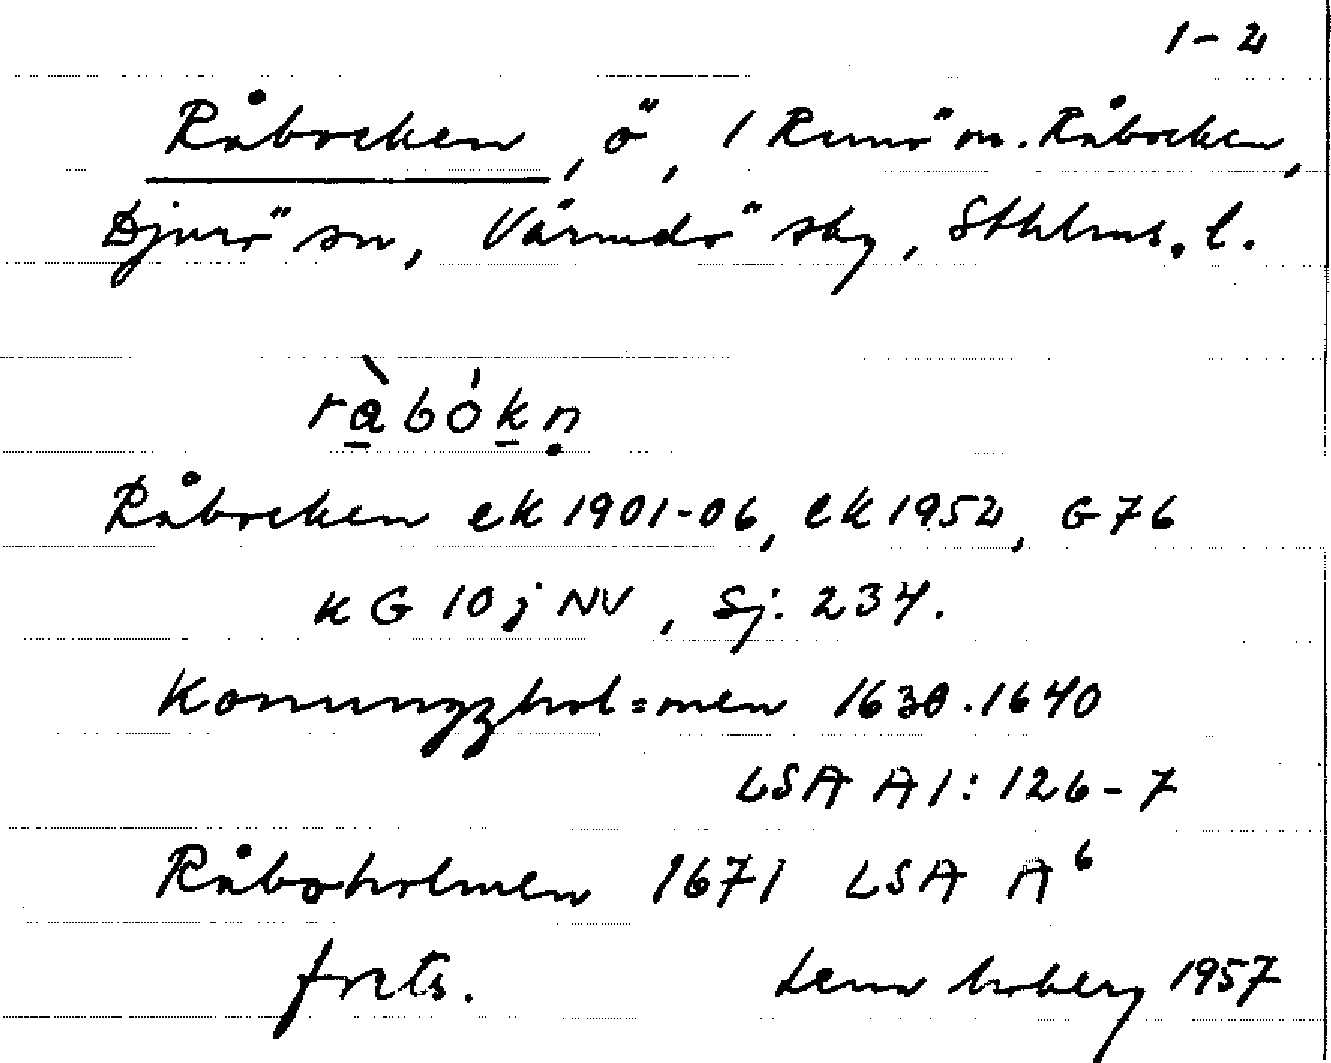 1-2
Råbocken, ö, 1 Runö m. Råbocken,
Djurö sn, Värmdö skg, Sthlms. l.
ràbókṇ
Råbocken ek 1901-06, ek 1952, G 76
k G 10 j NV, Sj: 234.
Konungzhol=men 1630.1640
LSA A1: 126-7
Råboholmen 1671 LSA A6
forts.
Lena Moberg 1957